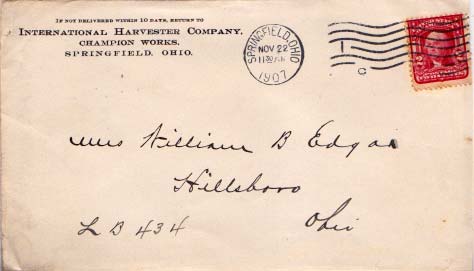 IF NOT DELIVERED WITHIN 10 DAYS, RETURN TO
INTERNATIONAL HARVESTER COMPANY.
CHAMPION WORKS.
SPRINGFIELD, OHIO.
SPRINGFIELD, OHIO
NOV 22
1907
1
C
Mrs William B Edgar
Hillsboro
Ohio
L B 434